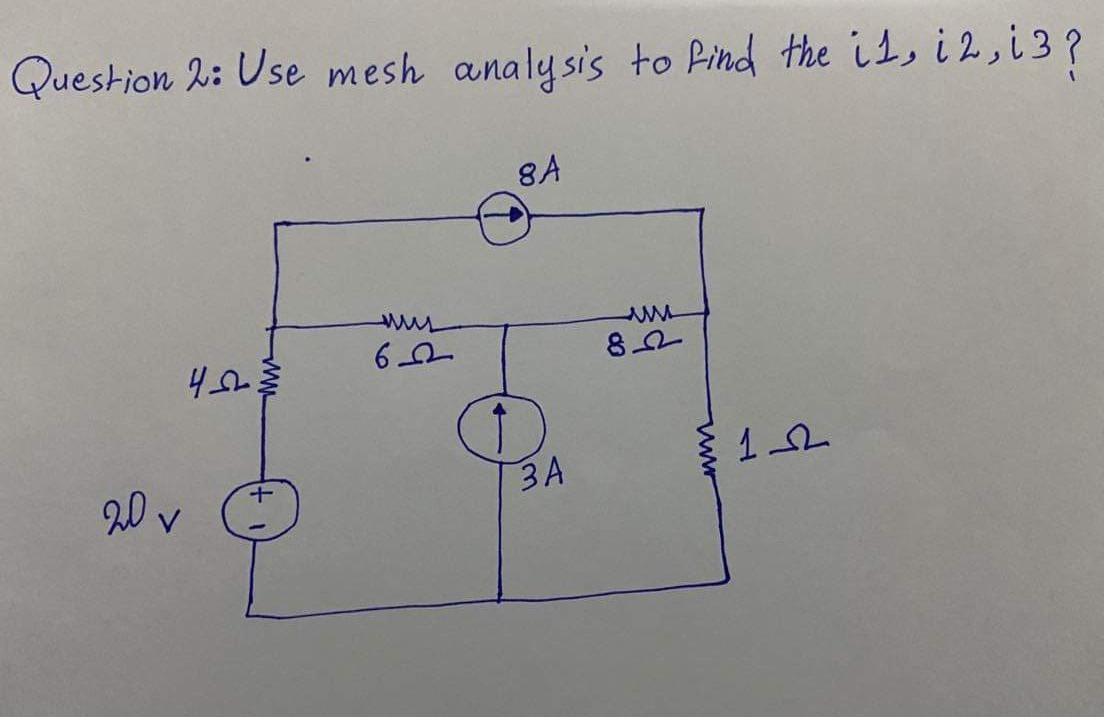 Question 2: Use mesh analysis to find the i1, i2, i3?
8A
6Ω
8Ω
4Ω
1Ω
3A
20 v
+
-